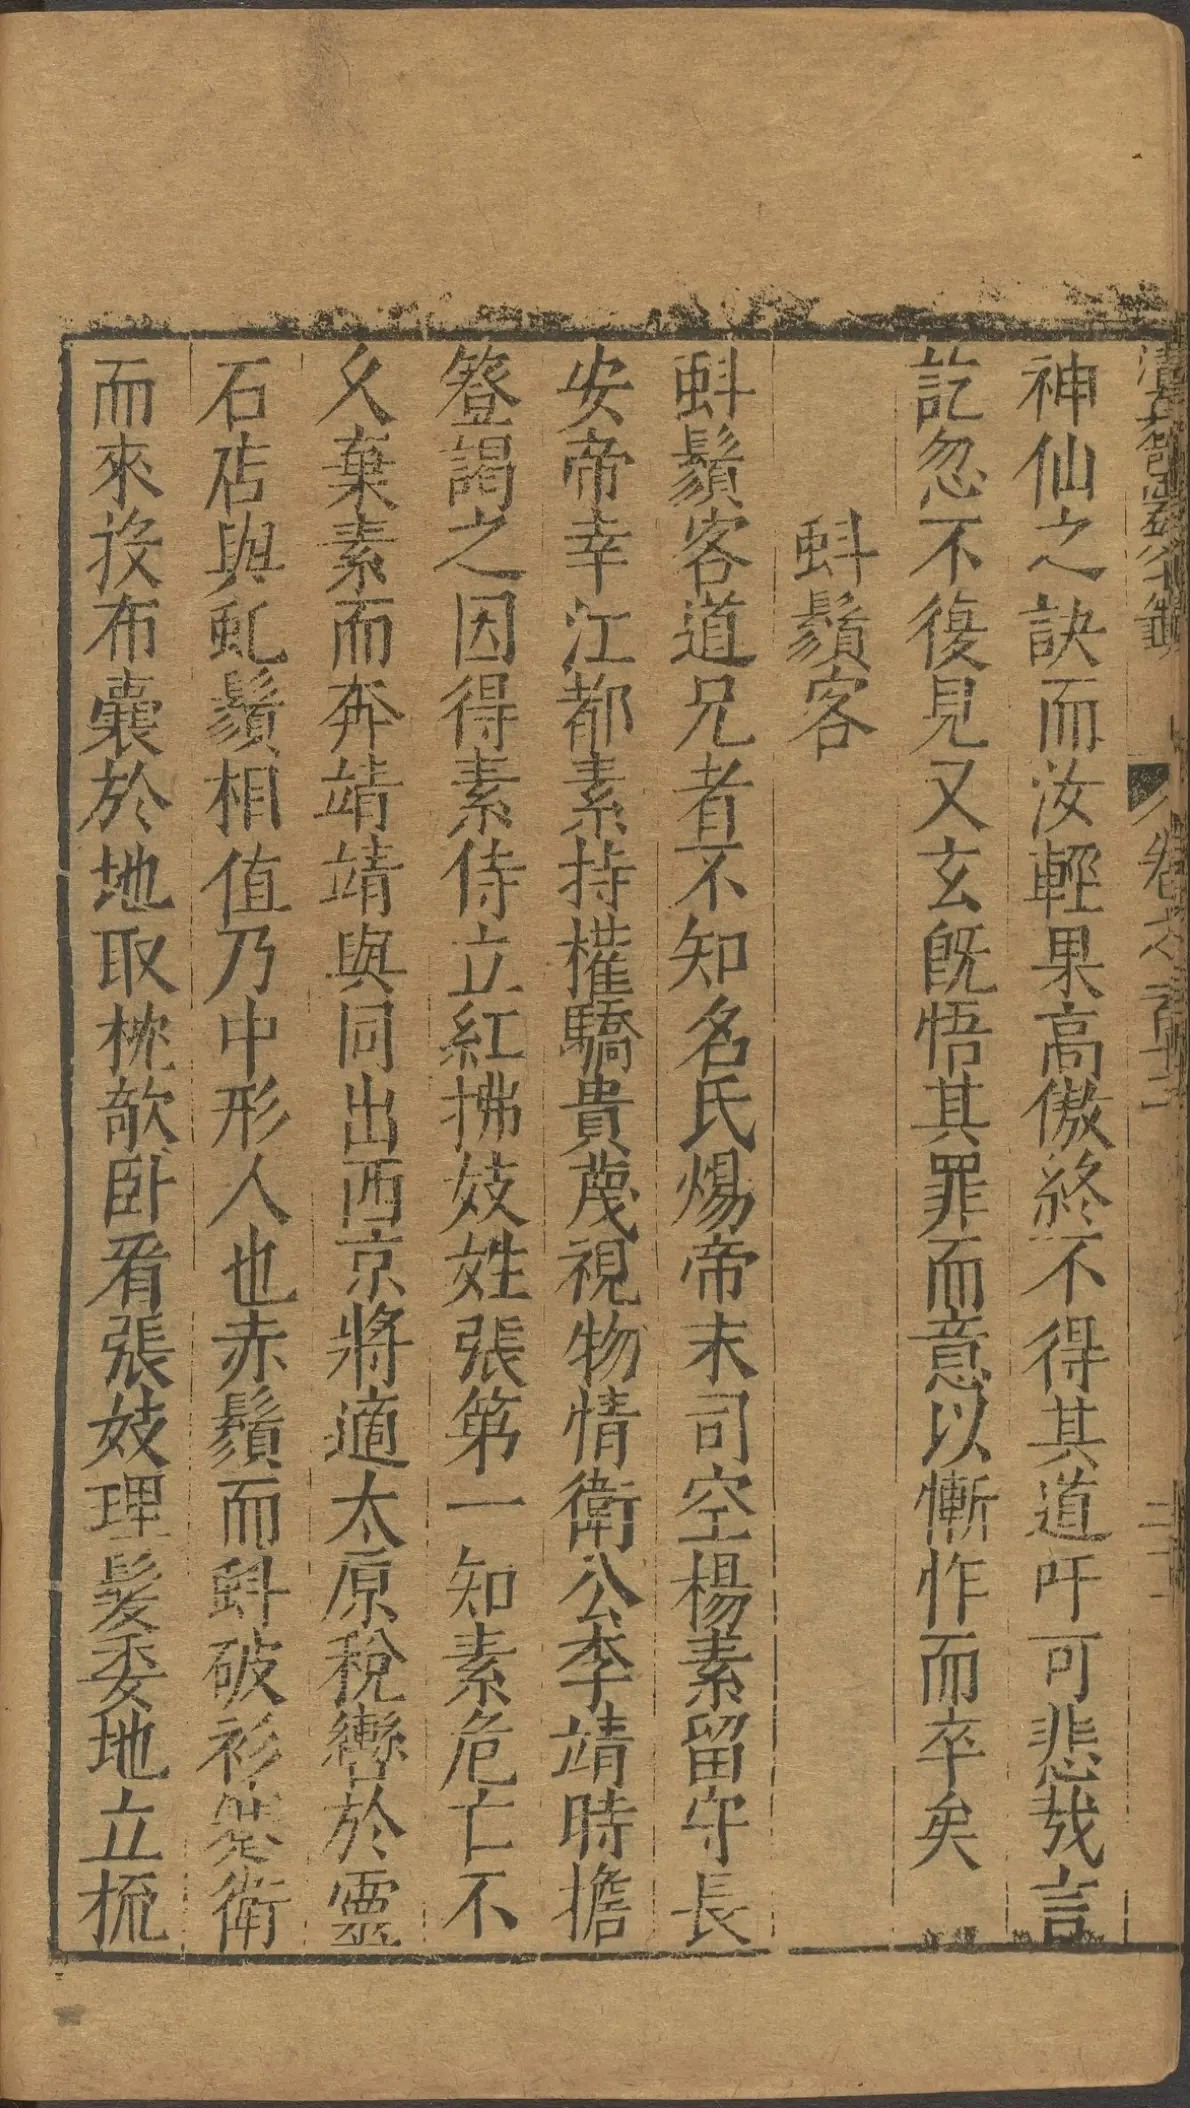 神仙之訣而汝輕果高傲終不得其道吁可悲㦲言
訖忽不復見又玄旣悟其罪而意以慚怍而卒矣
虯鬚客
虯鬚客道兄者不知名氏煬帝末司空楊素留守長
安帝幸江都素持權驕貴蔑視物情衛公李靖時擔
簦謁之因得素侍立紅拂妓姓張第一知素危亡不
久棄素而奔靖靖與同出西京將適太原稅轡於靈
石店與虬鬚相值乃中形人也赤鬚而虯破衫蹇衛
而來投布囊於地取枕欹卧看張妓理髮委地立梳